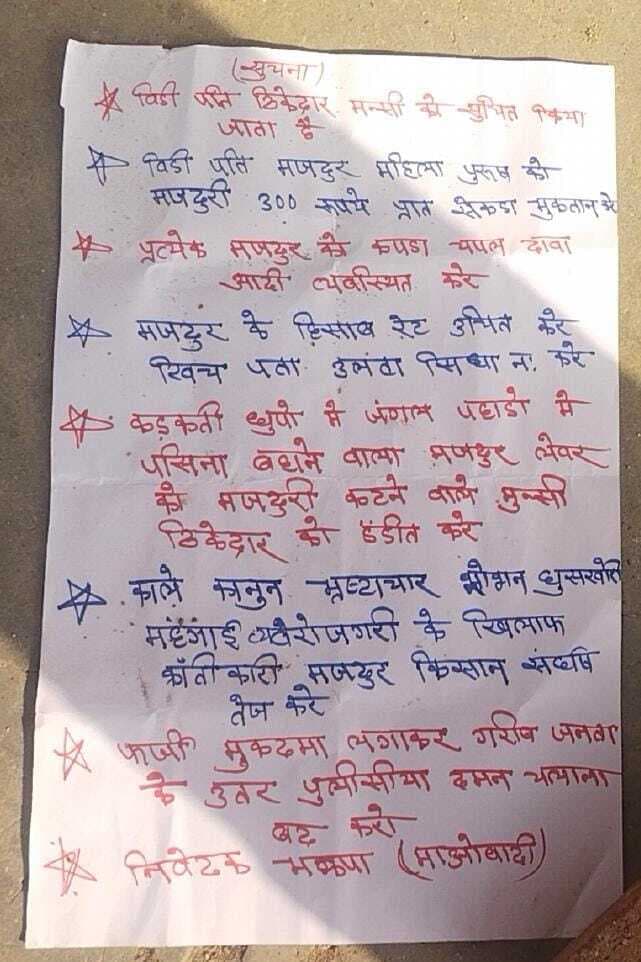 (सुचना)
विडी पति ठिकेदार मन्सी को सुचित किया
जाता है
विडी पति माजदुर महिला पुरूष को
माजदुरी 300 रूपये प्रति सैकडा भुकतान करे
प्रत्येक माजदुर को कपडा चपल दावा
आदी व्यवस्थित करे
माजदुर के हिसाब रेट उचित करे
खिच पता उलटा सिधा न. करे
कड़कती धुपो मे जंगल पहाडो मे
पसिना बहाने वाला मजदुर लेवर
को माजदुरी काटने वाले मुन्सी
ठिकेदार को डंडीत करे
काले कानुन भ्रष्टाचार शोषन घुसखोरी
महंगाई व्यवेरोजगरी के खिलाफ
क्रांतीकारी मजदुर किसान संघर्ष
तेज करे
फार्जी मुकदमा लगाकर गरीब जनता
के उतर पुलीसीया दमन चलाना
बंद करो
निवेदक भाकपा (माओवादी)